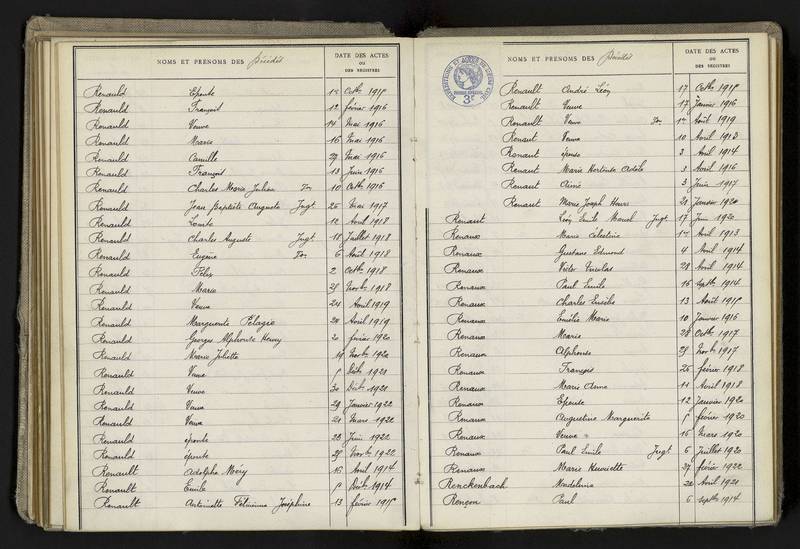 NOMS ET PRÉNOMS DES Décédés
DATE DES ACTES
OU
DES REGISTRES
Renauld Epouse 12 Octbre 1915
Renauld François 12 février 1916
Renauld Veuve 14 Mai 1916
Renauld Marie 16 Mai 1916
Renauld Camille 29 Mai 1916
Renauld François 13 Juin 1916
Renauld Charles Marie Julien 10 Octbre 1916
Renauld Jean Baptiste Auguste Jugt 26 Mai 1917
Renauld Louise 12 Avril 1918
Renauld Charles Auguste Jugt 18 Juillet 1918
Renauld Eugène 6 Août 1918
Renauld Félix 2 Octbre 1918
Renauld Marie 25 Novbre 1918
Renauld Veuve 24 Avril 1919
Renauld Marguerite Pélagie 28 Avril 1919
Renauld Georges Alphonse Henry 2 février 1920
Renauld Marie Juliette 19 Novbre 1920
Renauld Veuve Décbre 1920
Renauld Veuve 30 Décbre 1920
Renauld Veuve 29 Janvier 1922
Renauld Veuve 21 Mars 1922
Renauld épouse 22 Juin 1922
Renauld épouse 25 Novbre 1922
Renault Adolphe Méry 16 Avril 1914
Renault Emile Décbre 1914
Renault Antoinette Félicienne Joséphine 13 février 1915
EXPÉDITIONS ET ACTES DE L'ÉTAT CIVIL
3F
NOMS ET PRÉNOMS DES Décédés
DATE DES ACTES
OU
DES REGISTRES
Renault André Léon 17 Octbre 1915
Renault Veuve 17 Janvier 1916
Renault Veuve 12 Août 1919
Renaut Veuve 10 Avril 1913
Renaut épouse 3 Avril 1914
Renaut Marie Hortense Adèle 3 Avril 1916
Renaut Aimé 3 Juin 1917
Renaut Marie Joseph Henri 21 Janvier 1920
Renaut Léon Emile Marcel Jugt 17 Juin 1920
Renaux Marie Célestine Avril 1913
Renaux Gustave Edmond 4 Avril 1914
Renaux Victor Nicolas 28 Avril 1914
Renaux Paul Emile 16 Septbre 1914
Renaux Charles Eusèbe 13 Août 1915
Renaux Emilie Marie 10 Janvier 1916
Renaux Marie 28 Octbre 1917
Renaux Alphonse 25 Novbre 1917
Renaux François 26 février 1918
Renaux Marie Anne 11 Avril 1918
Renaux Epouse 12 Janvier 1920
Renaux Augustine Marguerite février 1920
Renaux Veuve 16 Mars 1920
Renaux Paul Emile Jugt 6 Juillet 1920
Renaux Marie Henriette 27 février 1922
Renckenbach Madeleine 22 Avril 1921
Rençon Paul 6 Septbre 1914